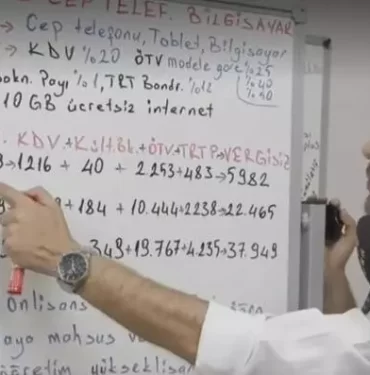 CEP TELEF. BİLGİSAYAR
→ Cep telefonu, Tablet, Bilgisayar
→ KDV %20 ÖTV modele göre %25
%40
%50
Payı %1, TRT Bandr. %12
10 GB ücretsiz internet
KDV + Kült.Bk. + ÖTV + TRT P → VERGİSİZ
→ 1216 + 40 + 2.253 + 483 → 5982
+ 184 + 10.444 + 2238 → 22.465
349 + 19.767 + 4.235 → 37.949
Önlisans
mahsus
yükseklisan